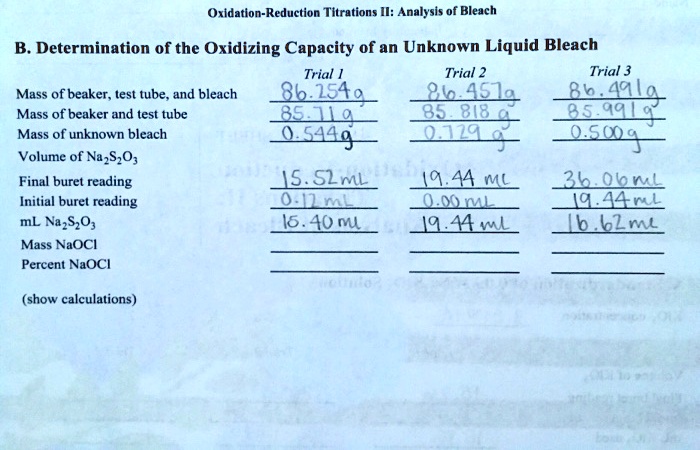 Oxidation-Reduction Titrations II: Analysis of Bleach
B. Determination of the Oxidizing Capacity of an Unknown Liquid Bleach
Trial 1 Trial 2 Trial 3
Mass of beaker, test tube, and bleach 86.254g 86.457g 86.491g
Mass of beaker and test tube 85.71 g 85.818 g 85.991g
Mass of unknown bleach 0.544g 0.729 g 0.500g
Volume of Na₂S₂O₃
Final buret reading 15.52mL 19.44 mL 36.06mL
Initial buret reading 0.12 mL 0.00 mL 19.44mL
mL Na₂S₂O₃ 15.40 mL 19.44 mL 16.62mL
Mass NaOCl
Percent NaOCl
(show calculations)